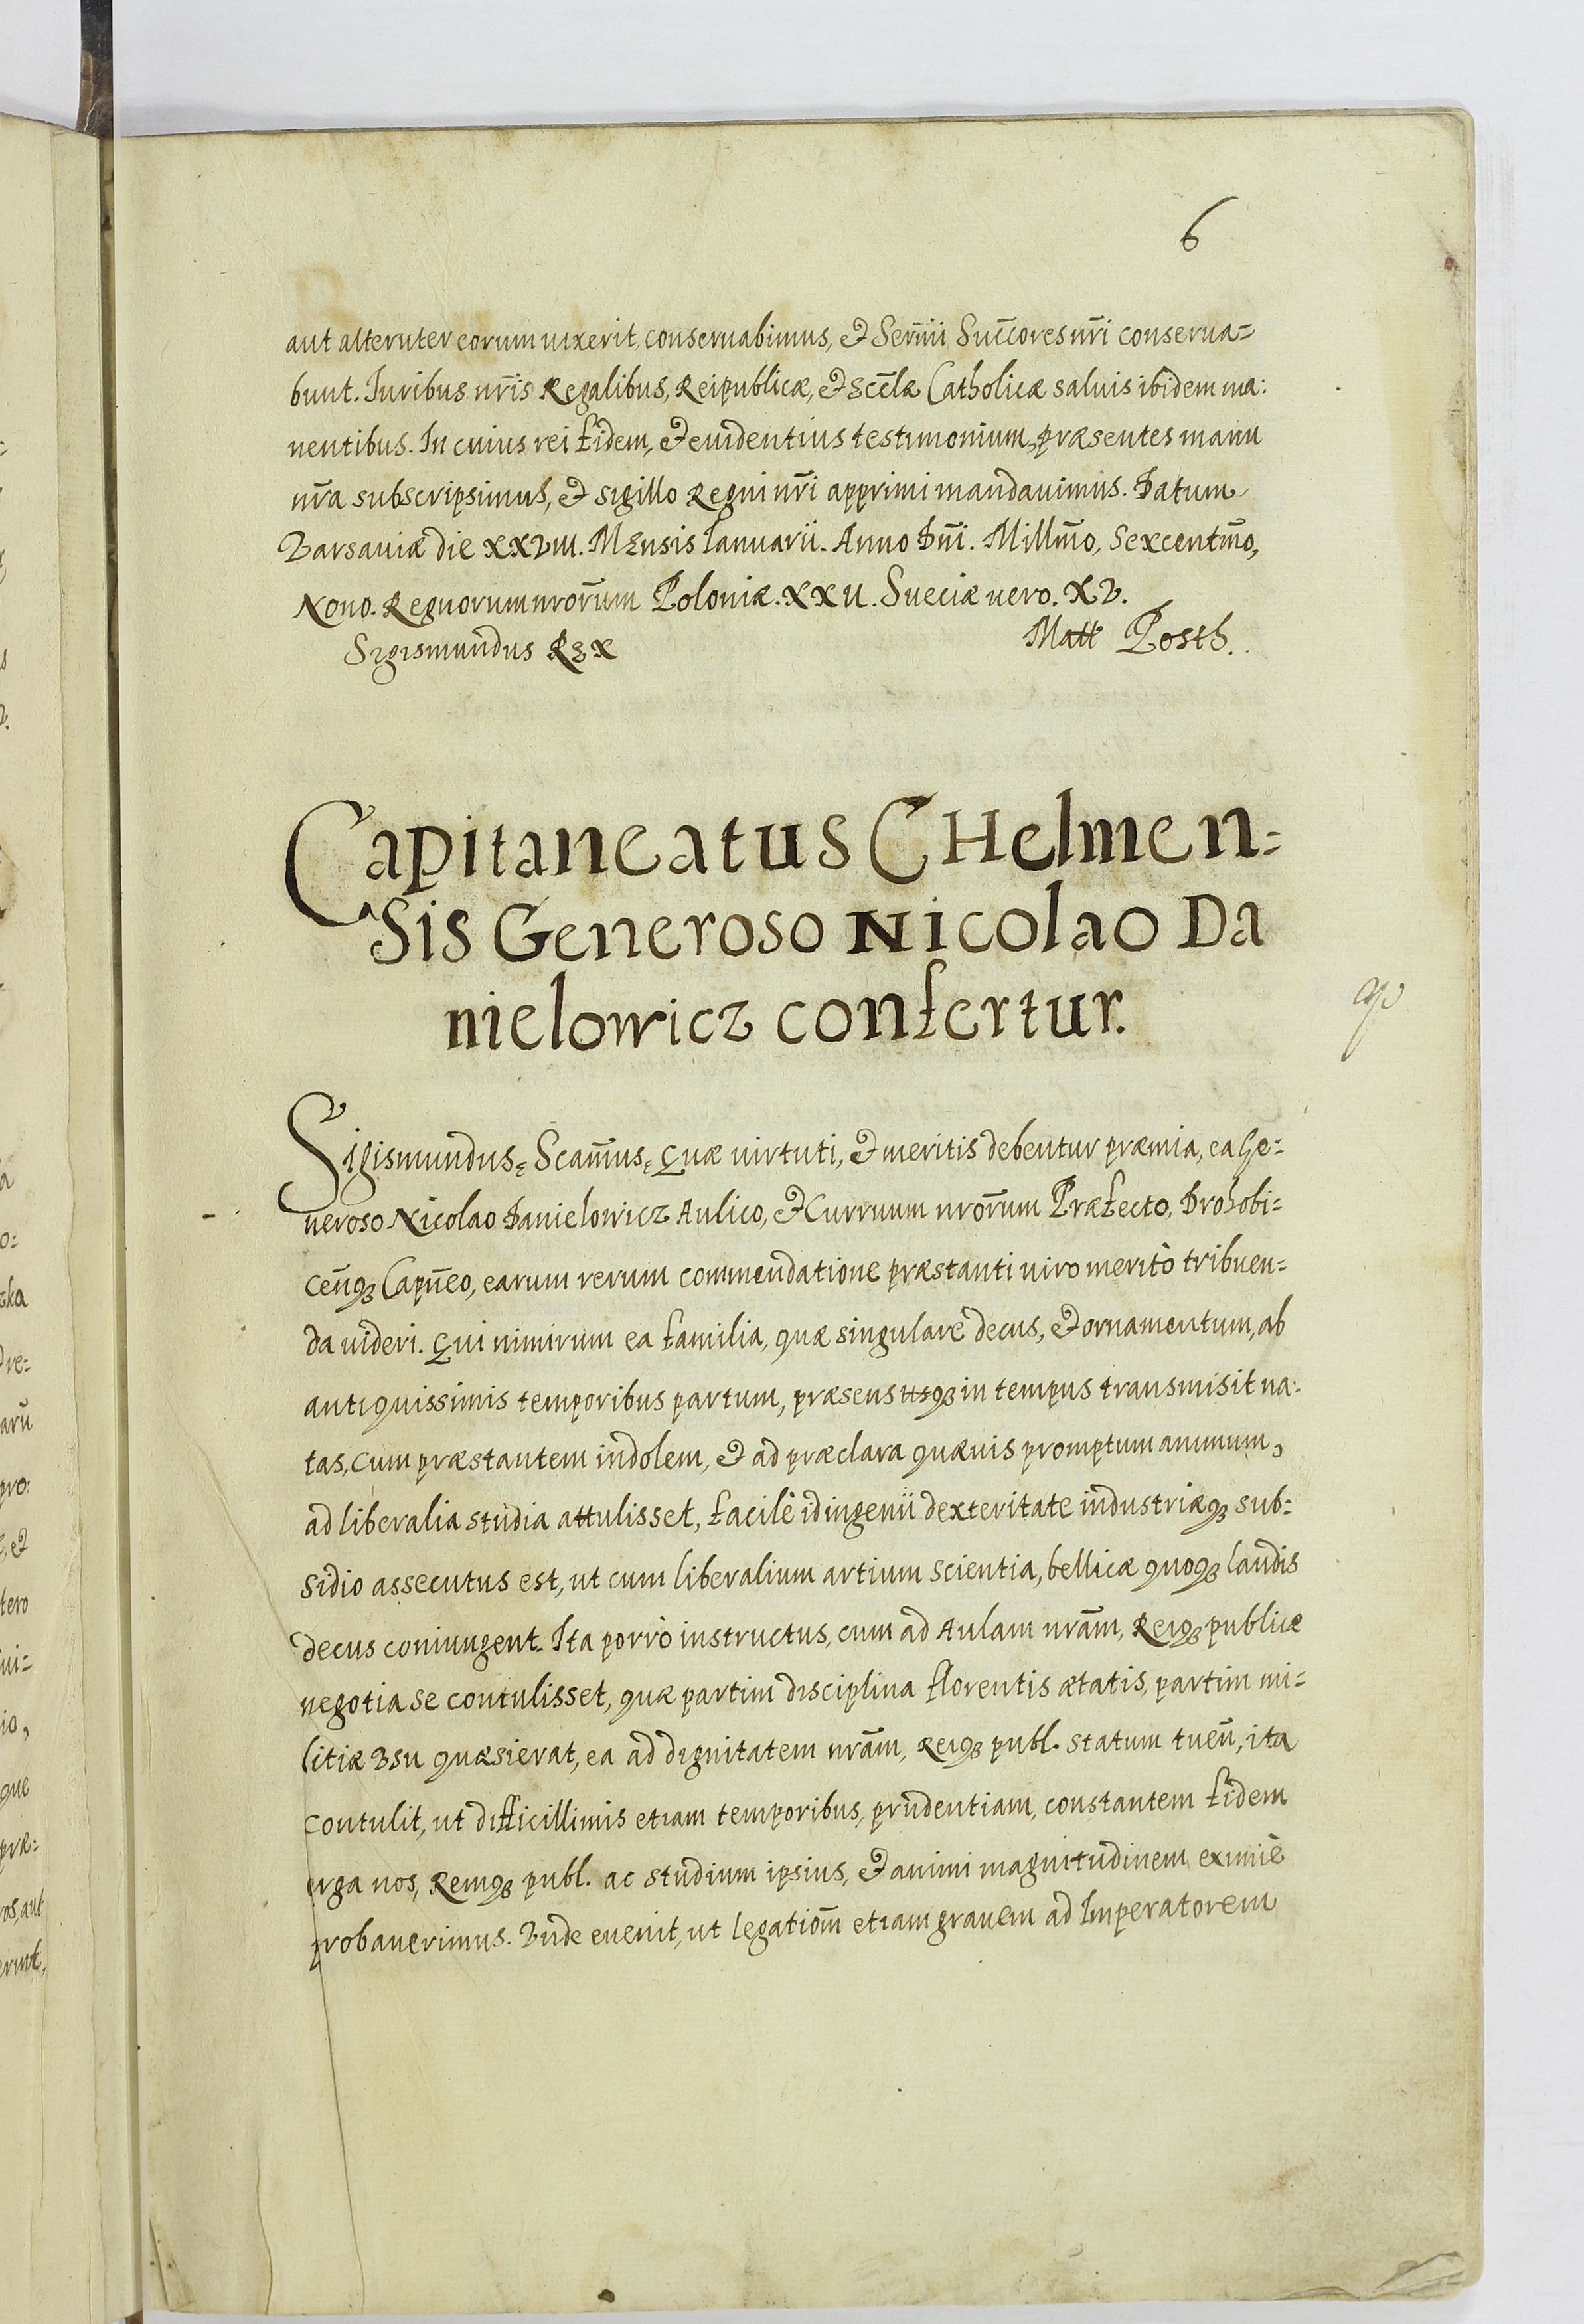 6
aut alteruter eorum uixerit, conseruabimus, et Serm̃ii Succ̃ores nr̃i conserua=
bunt. Iuribus nr̃is Regalibus, Reipublicæ, et Ecc̃læ Catholicæ saluis ibidem ma:
nentibus. In cuius rei fidem, et euidentius testimonium, præsentes manu
nr̃a subscripsimus, et sigillo Regni nr̃i apprimi mandauimus. Datum
Varsauiæ die XXVIII. Mensis Ianuarii. Anno Dn̄i. Millm̃o, Sexcentm̃o,
Nono. Regnorum nror̃um Poloniæ. XXII. Sueciæ uero. XV.
Sigismundus Rex
Matt Posth.
Capitaneatus CHelmen=
Sis Generoso Nicolao Da
nielowicz confertur.
Sigismundus ę Scam̃us ę Quæ uirtuti, et meritis debentur præmia, ea Ge=
neroso Nicolao Danielowicz Aulico, et Curruum nror̃um Præfecto, Drohobi=
cen̄qȝ Capn̄eo, earum rerum commendatione præstanti uiro meritò tribuen=
da uideri. Qui nimirum ea familia, quæ singulare decus, et ornamentum, ab
antiquissimis temporibus partum, præsens usqȝ in tempus transmisit na:
tas, cum præstantem indolem, et ad præclara quæuis promptum animum,
ad liberalia studia attulisset, facilè id ingenii dexteritate industriæqȝ sub=
sidio assecutus est, ut cum liberalium artium scientia, bellicæ quoqȝ laudis
decus coniungent. Ita porrò instructus, cum ad Aulam nrãm, Reiqȝ publicæ
negotia se contulisset, quæ partim disciplina florentis ætatis, partim mi=
litiæ Vsu quæsierat, ea ad dignitatem nrãm, Reiqȝ publ. statum tuen̄, ita
contulit, ut difficillimis etiam temporibus, prudentiam, constantem fidem
erga nos, Remqȝ publ. ac studium ipsius, et animi magnitudinem eximiè
probauerimus. Vnde euenit, ut legatiom̃ etiam grauem ad Imperatorem